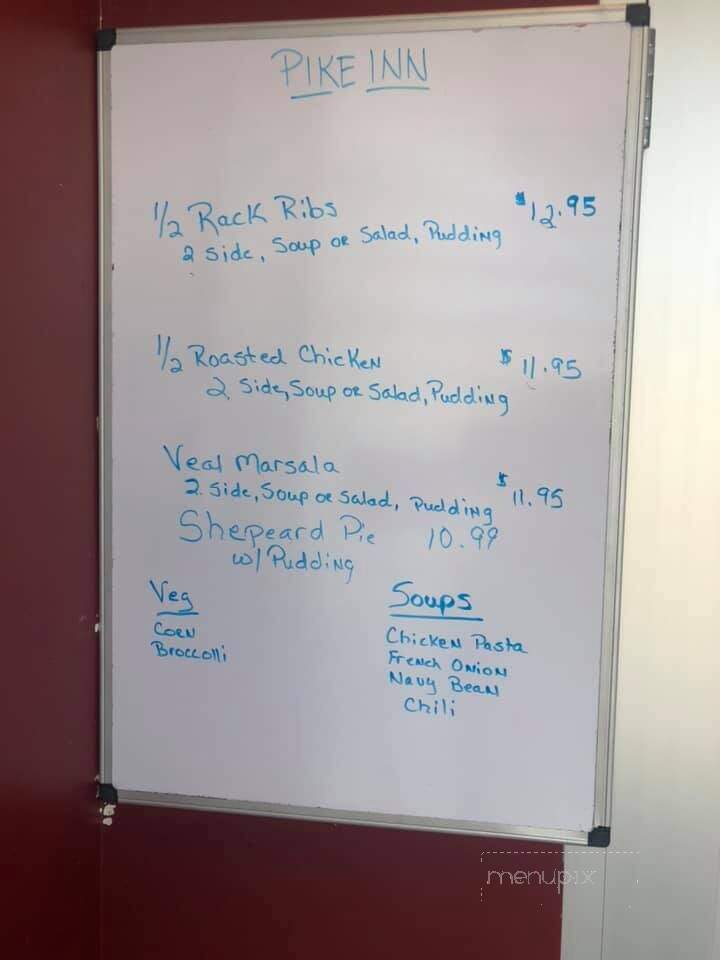 PIKE INN
1/2 Rack Ribs $12.95
2 Side, Soup or Salad, Pudding
1/2 Roasted Chicken $11.95
2 Side, Soup or Salad, Pudding
Veal Marsala $11.95
2 Side, Soup or Salad, Pudding
Shepeard Pie 10.99
w/ Pudding
Veg
Corn
Broccolli
Soups
Chicken Pasta
French Onion
Navy Bean
Chili
menupix